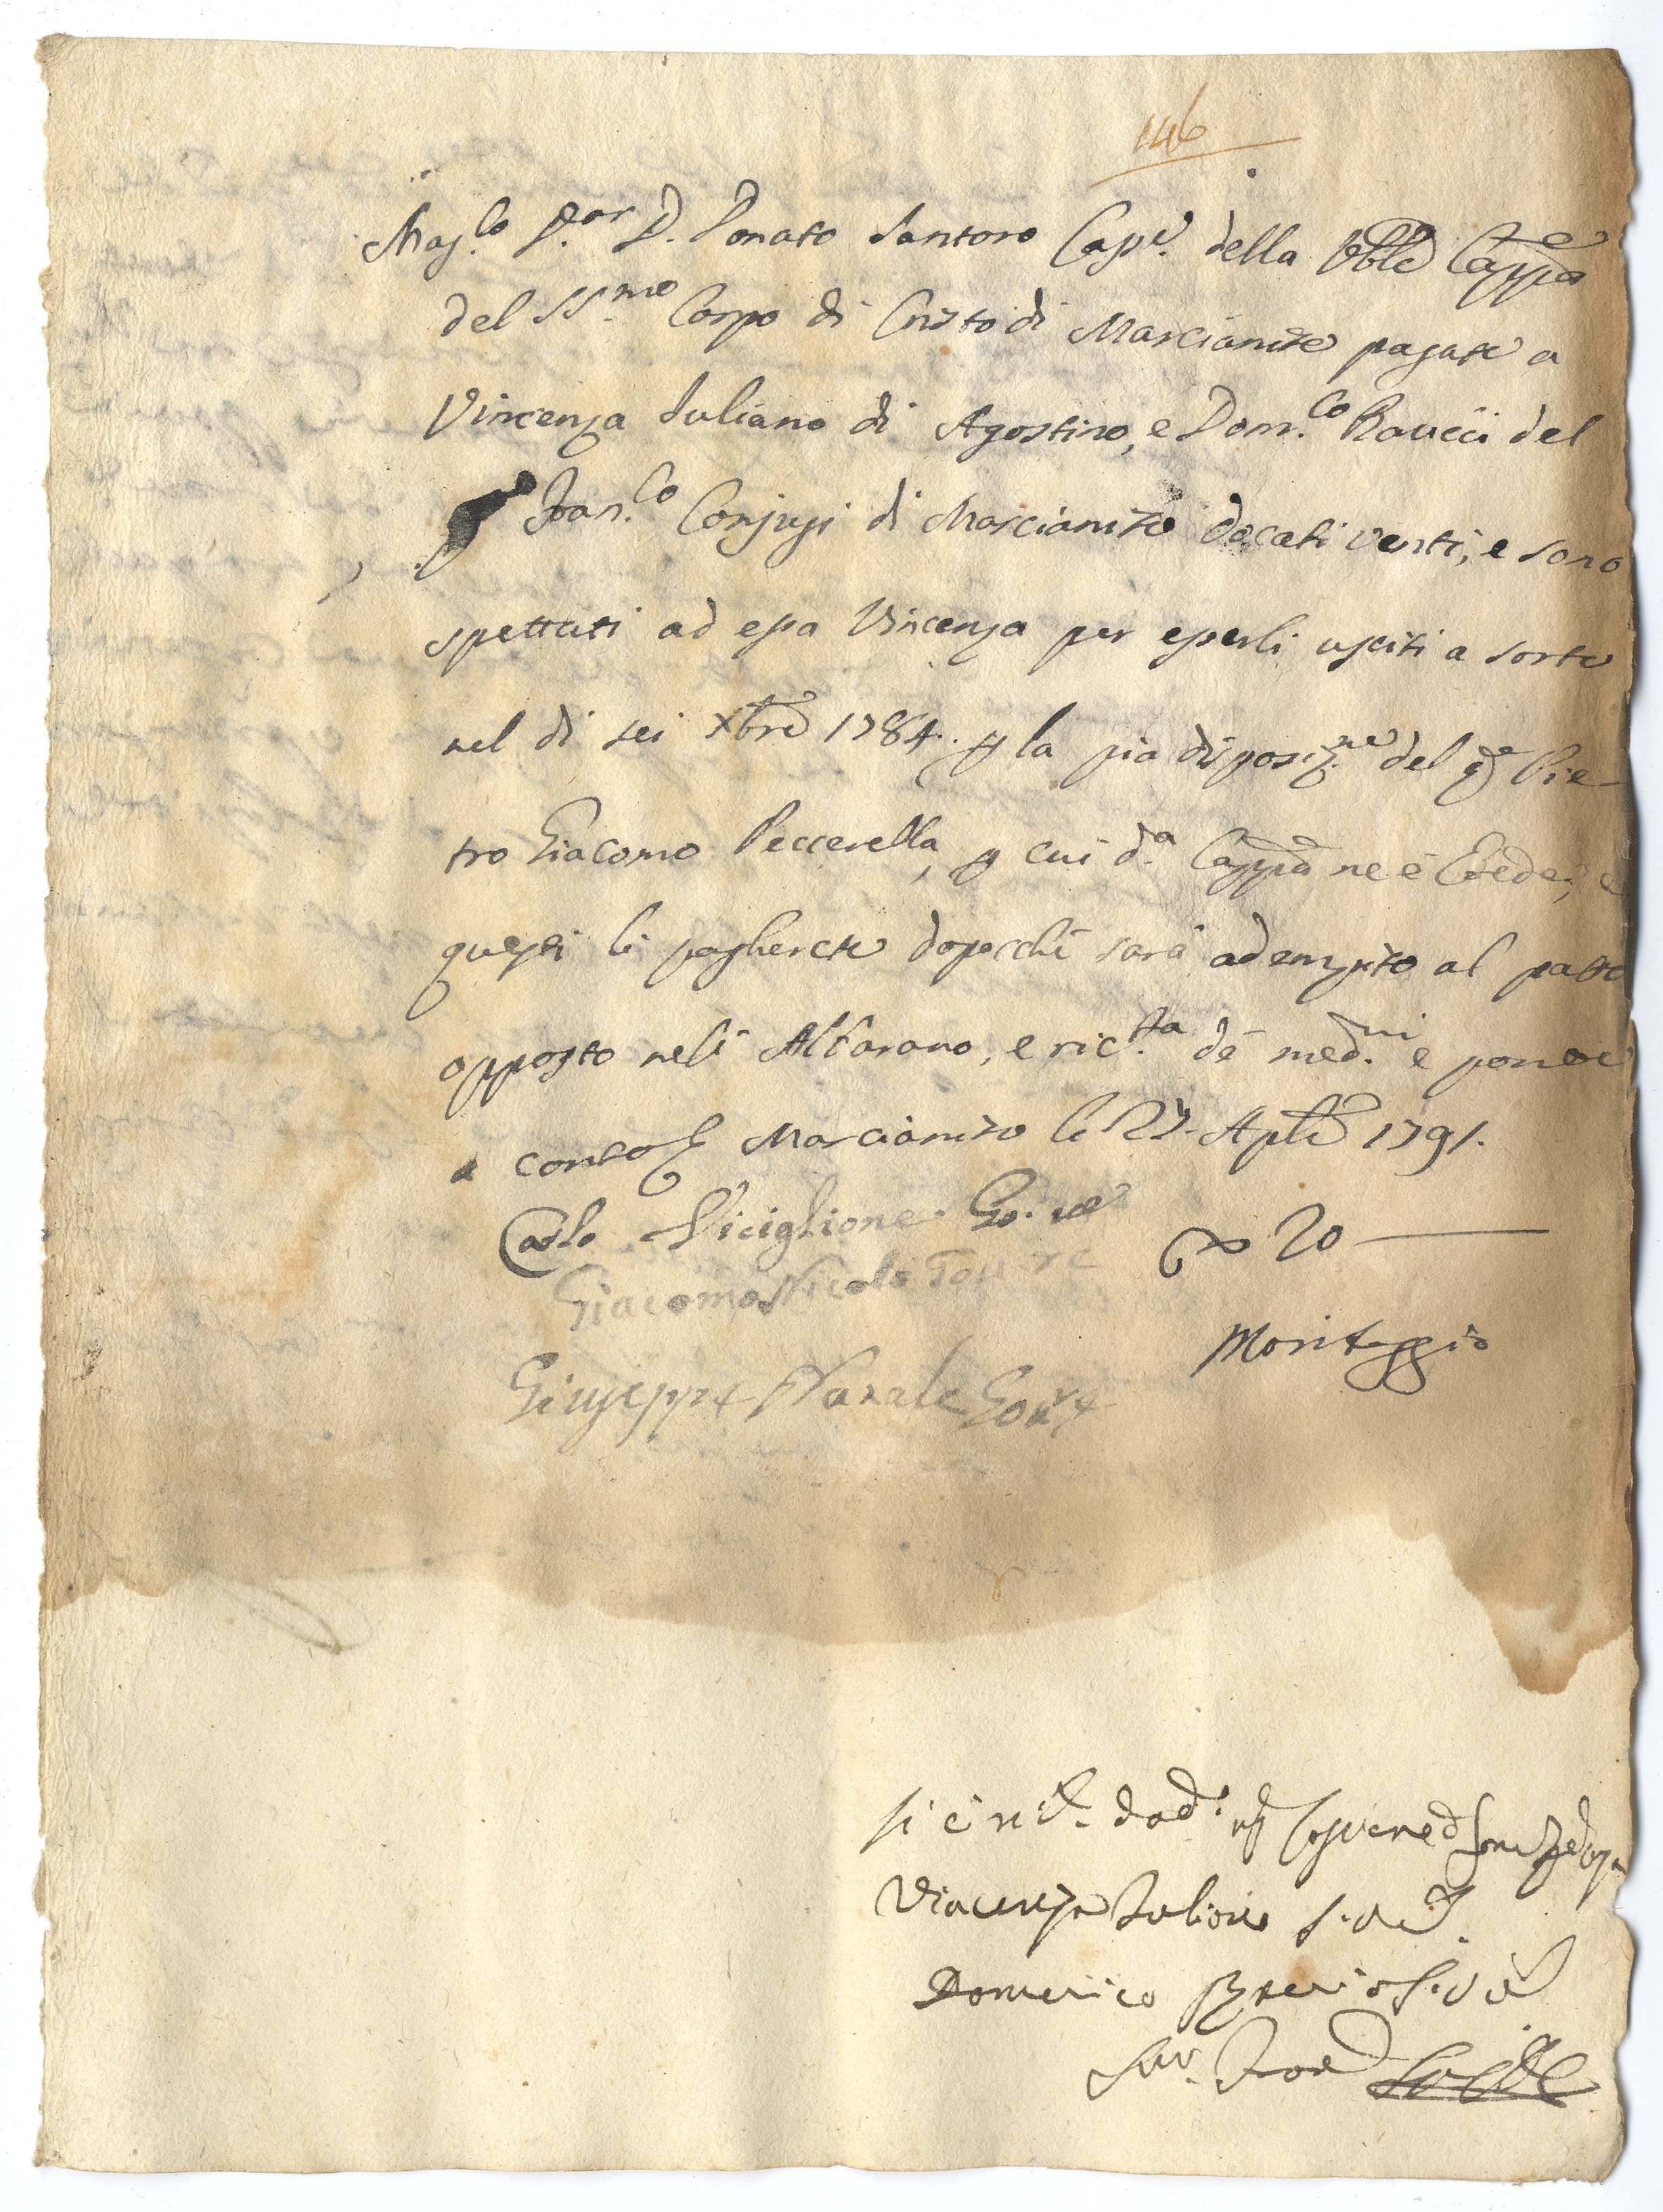 146
Mag.co D.or D. Donato Santoro Capp.e della Vble Cappa
del SS.mo Corpo di Cristo di Marcianise pagate a
Vincenza Iuliano di Agostino, e Dom.co Raucci del
Fran.co Conjugi di Marcianise docati venti, e sono
spettati ad essa Vincenza per esserli usciti a sorte
nel dì sei Xbre 1784. p la pia disposiz.ne del qm Pie-
tro Giacomo Peccerella, p cui d.a Cappa ne è Erede, e
questi li pagherete dopocchè sarà adempito al patto
opposto nell' Albarano, e ric.ta de med.mi e ponete
a conto Marcianise li 27. Aple 1791.
Carlo Viciglione Go.re
Giacomo Nicolò Gov re
Giuseppe Natale Gov.re
20
Monteggio
Vincenza Iuliano
Domenico